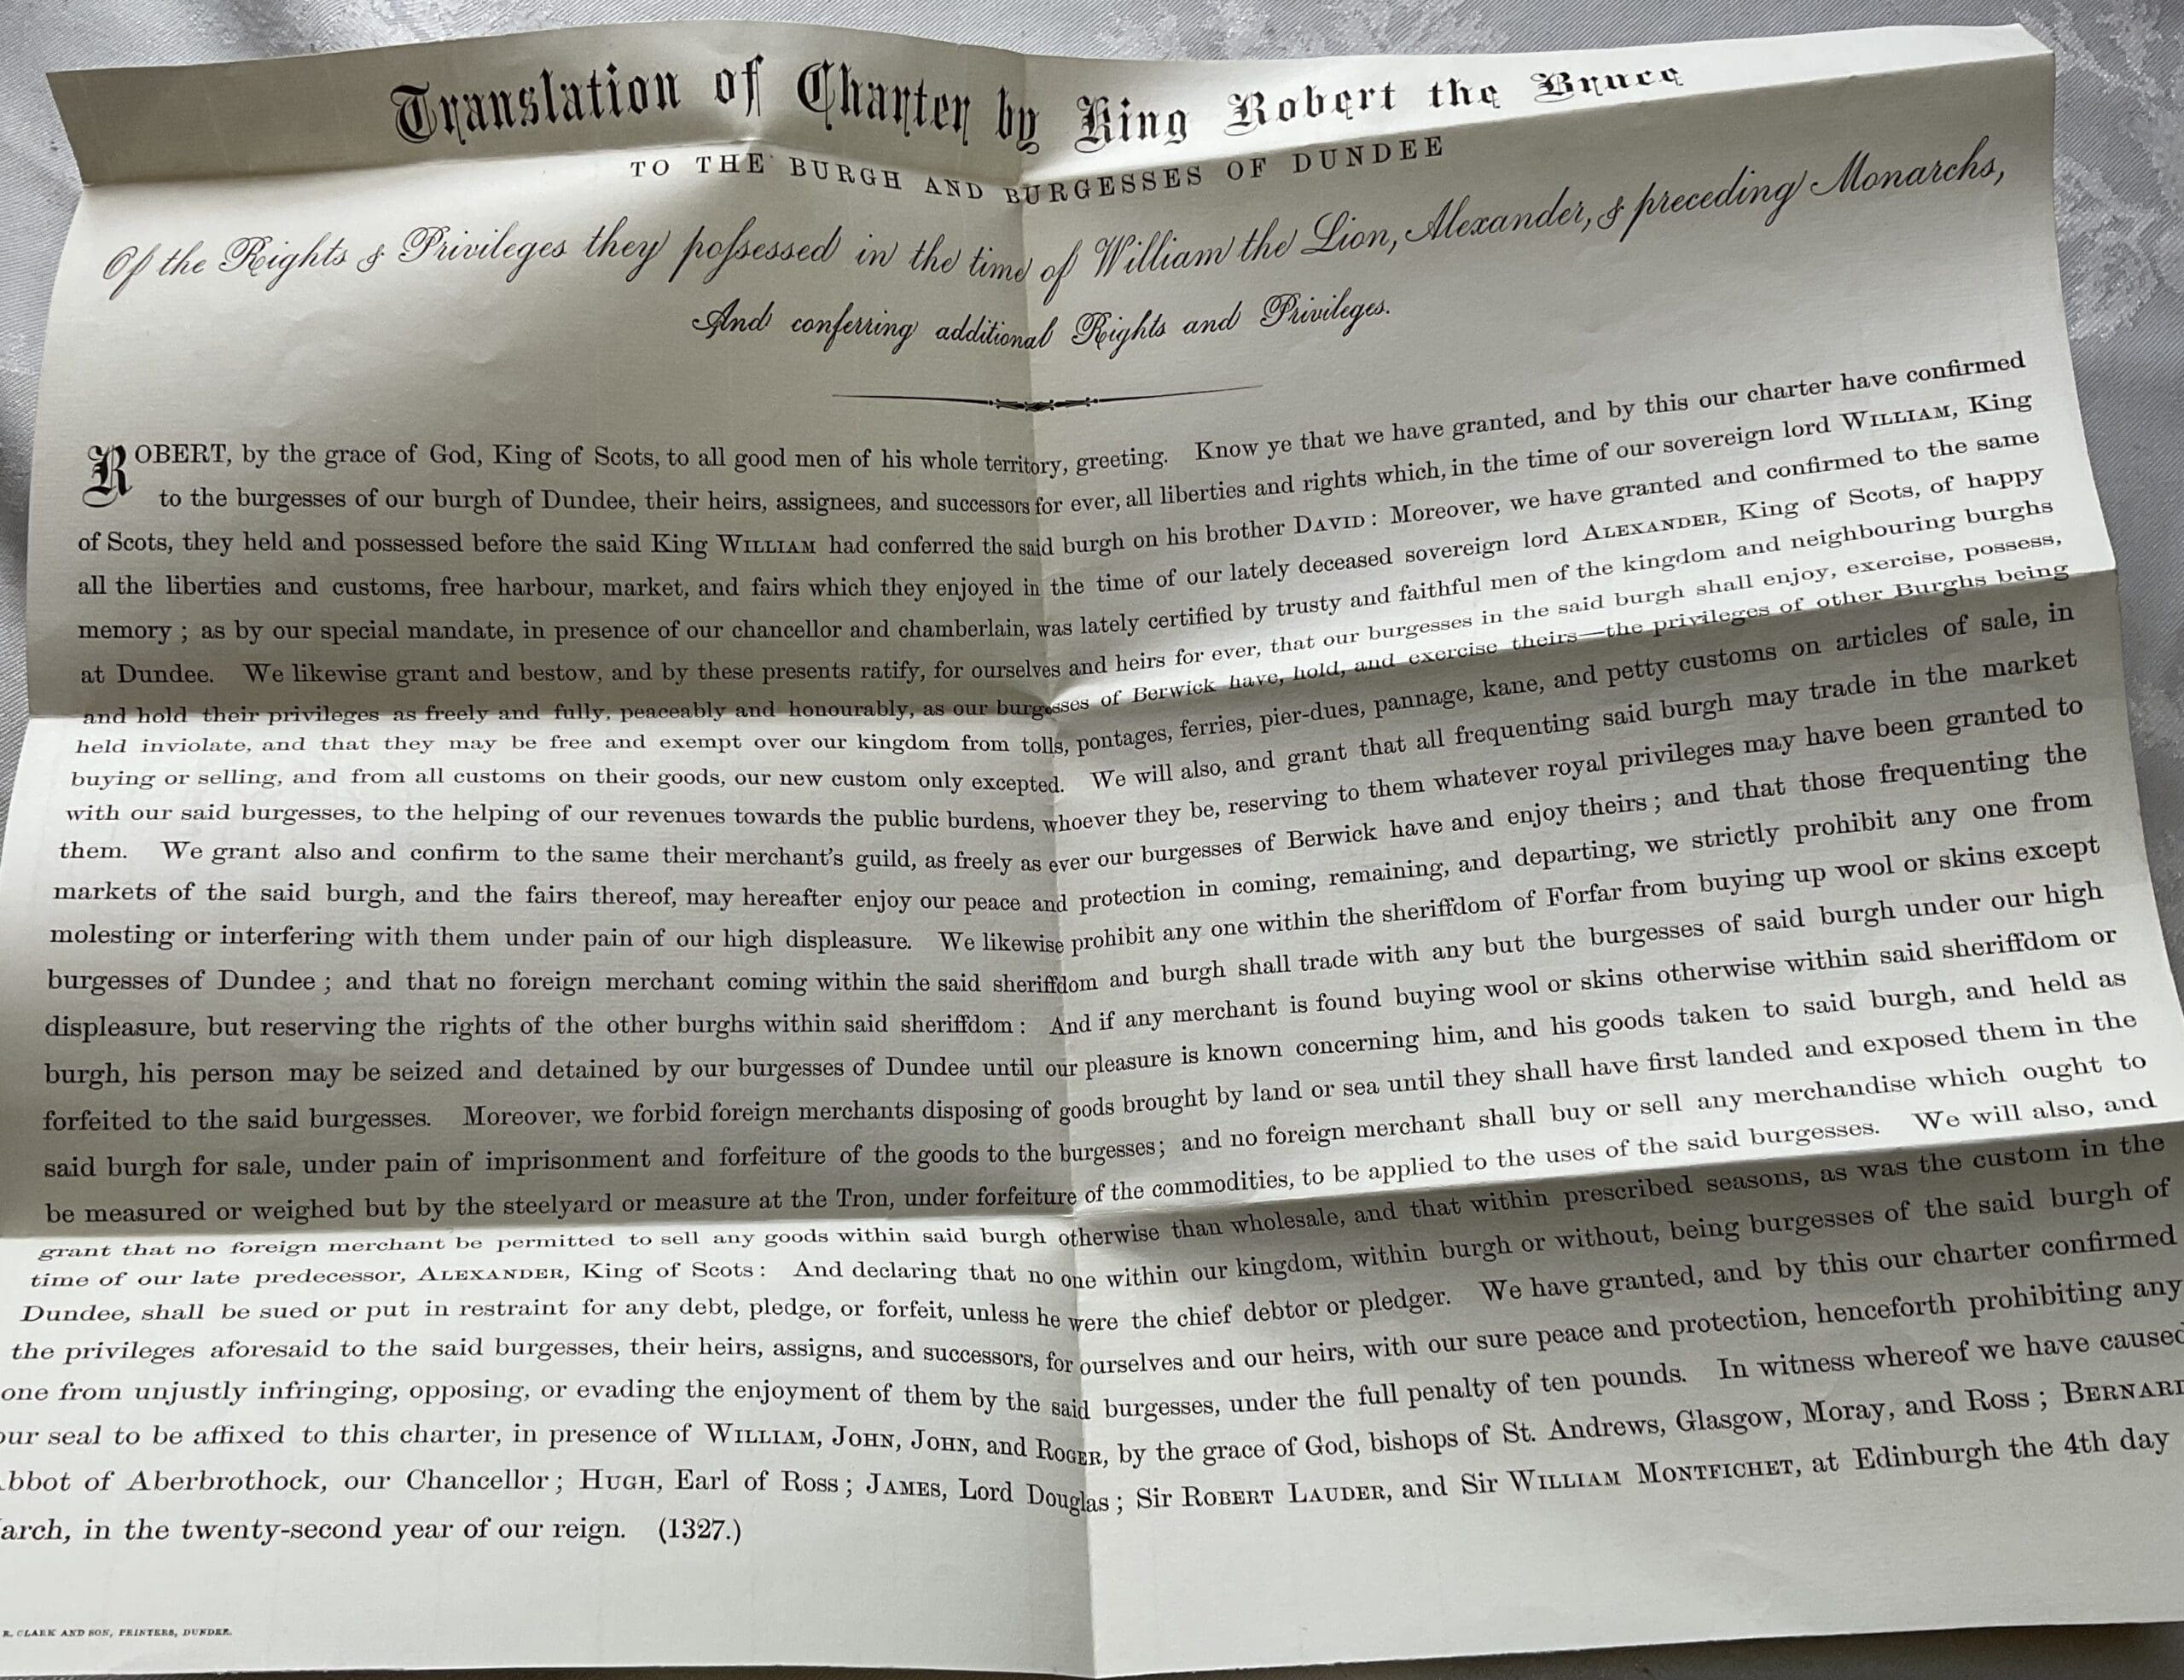 Translation of Charter by King Robert the Bruce
TO THE BURGH AND BURGESSES OF DUNDEE
Of the Rights & Privileges they poſsessed in the time of William the Lion, Alexander, & preceding Monarchs,
And conferring additional Rights and Privileges.
ROBERT, by the grace of God, King of Scots, to all good men of his whole territory, greeting. Know ye that we have granted, and by this our charter have confirmed
to the burgesses of our burgh of Dundee, their heirs, assignees, and successors for ever, all liberties and rights which, in the time of our sovereign lord WILLIAM, King
of Scots, they held and possessed before the said King WILLIAM had conferred the said burgh on his brother DAVID: Moreover, we have granted and confirmed to the same
all the liberties and customs, free harbour, market, and fairs which they enjoyed in the time of our lately deceased sovereign lord ALEXANDER, King of Scots, of happy
memory; as by our special mandate, in presence of our chancellor and chamberlain, was lately certified by trusty and faithful men of the kingdom and neighbouring burghs
at Dundee. We likewise grant and bestow, and by these presents ratify, for ourselves and heirs for ever, that our burgesses in the said burgh shall enjoy, exercise, possess,
and hold their privileges as freely and fully, peaceably and honourably, as our burgesses of Berwick have, hold, and exercise theirs—the privileges of other Burghs being
held inviolate, and that they may be free and exempt over our kingdom from tolls, pontages, ferries, pier-dues, pannage, kane, and petty customs on articles of sale, in
buying or selling, and from all customs on their goods, our new custom only excepted. We will also, and grant that all frequenting said burgh may trade in the market
with our said burgesses, to the helping of our revenues towards the public burdens, whoever they be, reserving to them whatever royal privileges may have been granted to
them. We grant also and confirm to the same their merchant's guild, as freely as ever our burgesses of Berwick have and enjoy theirs; and that those frequenting the
markets of the said burgh, and the fairs thereof, may hereafter enjoy our peace and protection in coming, remaining, and departing, we strictly prohibit any one from
molesting or interfering with them under pain of our high displeasure. We likewise prohibit any one within the sheriffdom of Forfar from buying up wool or skins except
burgesses of Dundee; and that no foreign merchant coming within the said sheriffdom and burgh shall trade with any but the burgesses of said burgh under our high
displeasure, but reserving the rights of the other burghs within said sheriffdom: And if any merchant is found buying wool or skins otherwise within said sheriffdom or
burgh, his person may be seized and detained by our burgesses of Dundee until our pleasure is known concerning him, and his goods taken to said burgh, and held as
forfeited to the said burgesses. Moreover, we forbid foreign merchants disposing of goods brought by land or sea until they shall have first landed and exposed them in the
said burgh for sale, under pain of imprisonment and forfeiture of the goods to the burgesses; and no foreign merchant shall buy or sell any merchandise which ought to
be measured or weighed but by the steelyard or measure at the Tron, under forfeiture of the commodities, to be applied to the uses of the said burgesses. We will also, and
grant that no foreign merchant be permitted to sell any goods within said burgh otherwise than wholesale, and that within prescribed seasons, as was the custom in the
time of our late predecessor, ALEXANDER, King of Scots: And declaring that no one within our kingdom, within burgh or without, being burgesses of the said burgh of
Dundee, shall be sued or put in restraint for any debt, pledge, or forfeit, unless he were the chief debtor or pledger. We have granted, and by this our charter confirmed
the privileges aforesaid to the said burgesses, their heirs, assigns, and successors, for ourselves and our heirs, with our sure peace and protection, henceforth prohibiting any
one from unjustly infringing, opposing, or evading the enjoyment of them by the said burgesses, under the full penalty of ten pounds. In witness whereof we have caused
our seal to be affixed to this charter, in presence of WILLIAM, JOHN, JOHN, and ROGER, by the grace of God, bishops of St. Andrews, Glasgow, Moray, and Ross; BERNARD
bbot of Aberbrothock, our Chancellor; HUGH, Earl of Ross; JAMES, Lord Douglas; Sir ROBERT LAUDER, and Sir WILLIAM MONTFICHET, at Edinburgh the 4th day
arch, in the twenty-second year of our reign. (1327.)
R. CLARK AND SON, PRINTERS, DUNDEE.